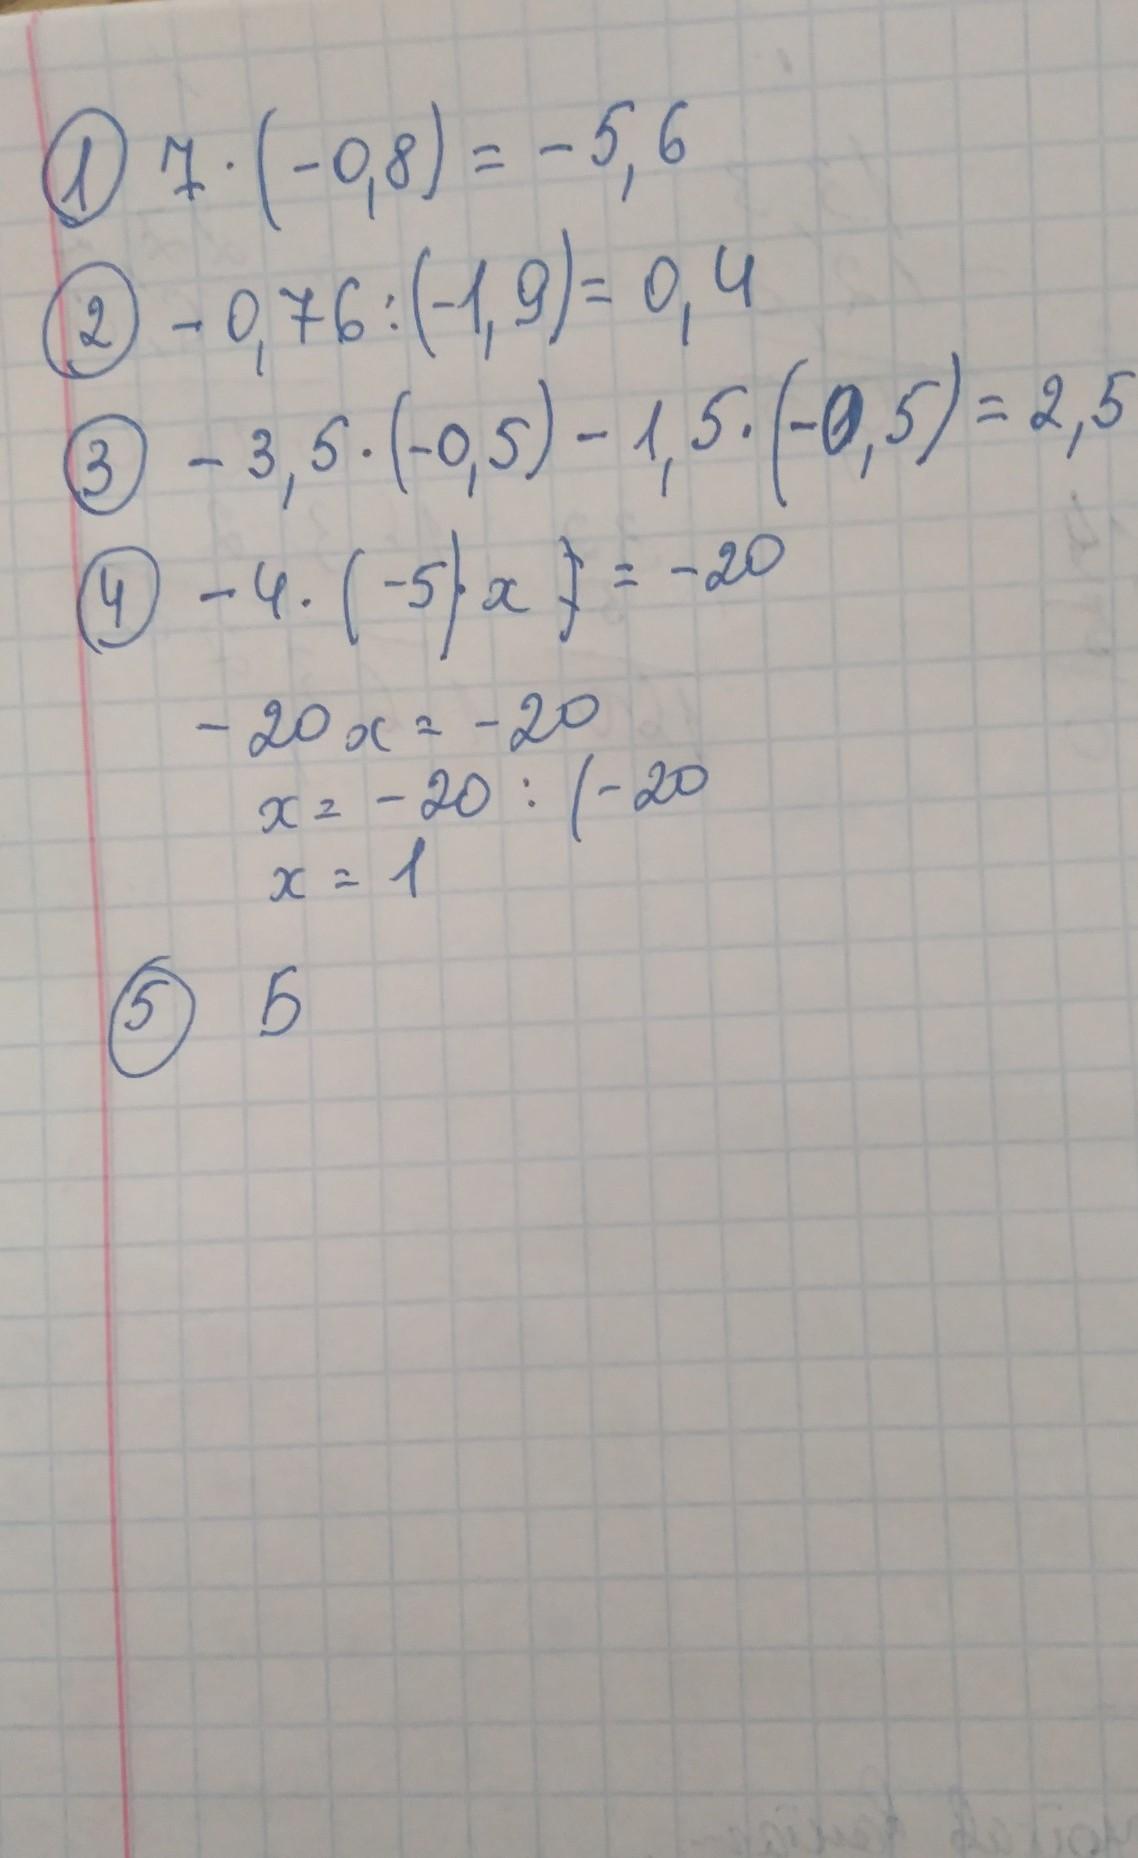 1 7 · (-0,8) = -5,6
2 - 0,76 : (-1,9) = 0,4
3 - 3,5 · (-0,5) - 1,5 · (-0,5) = 2,5
4 - 4 · (-5) · x = -20
- 20x = -20
x = -20 : (-20
x = 1
5 Б